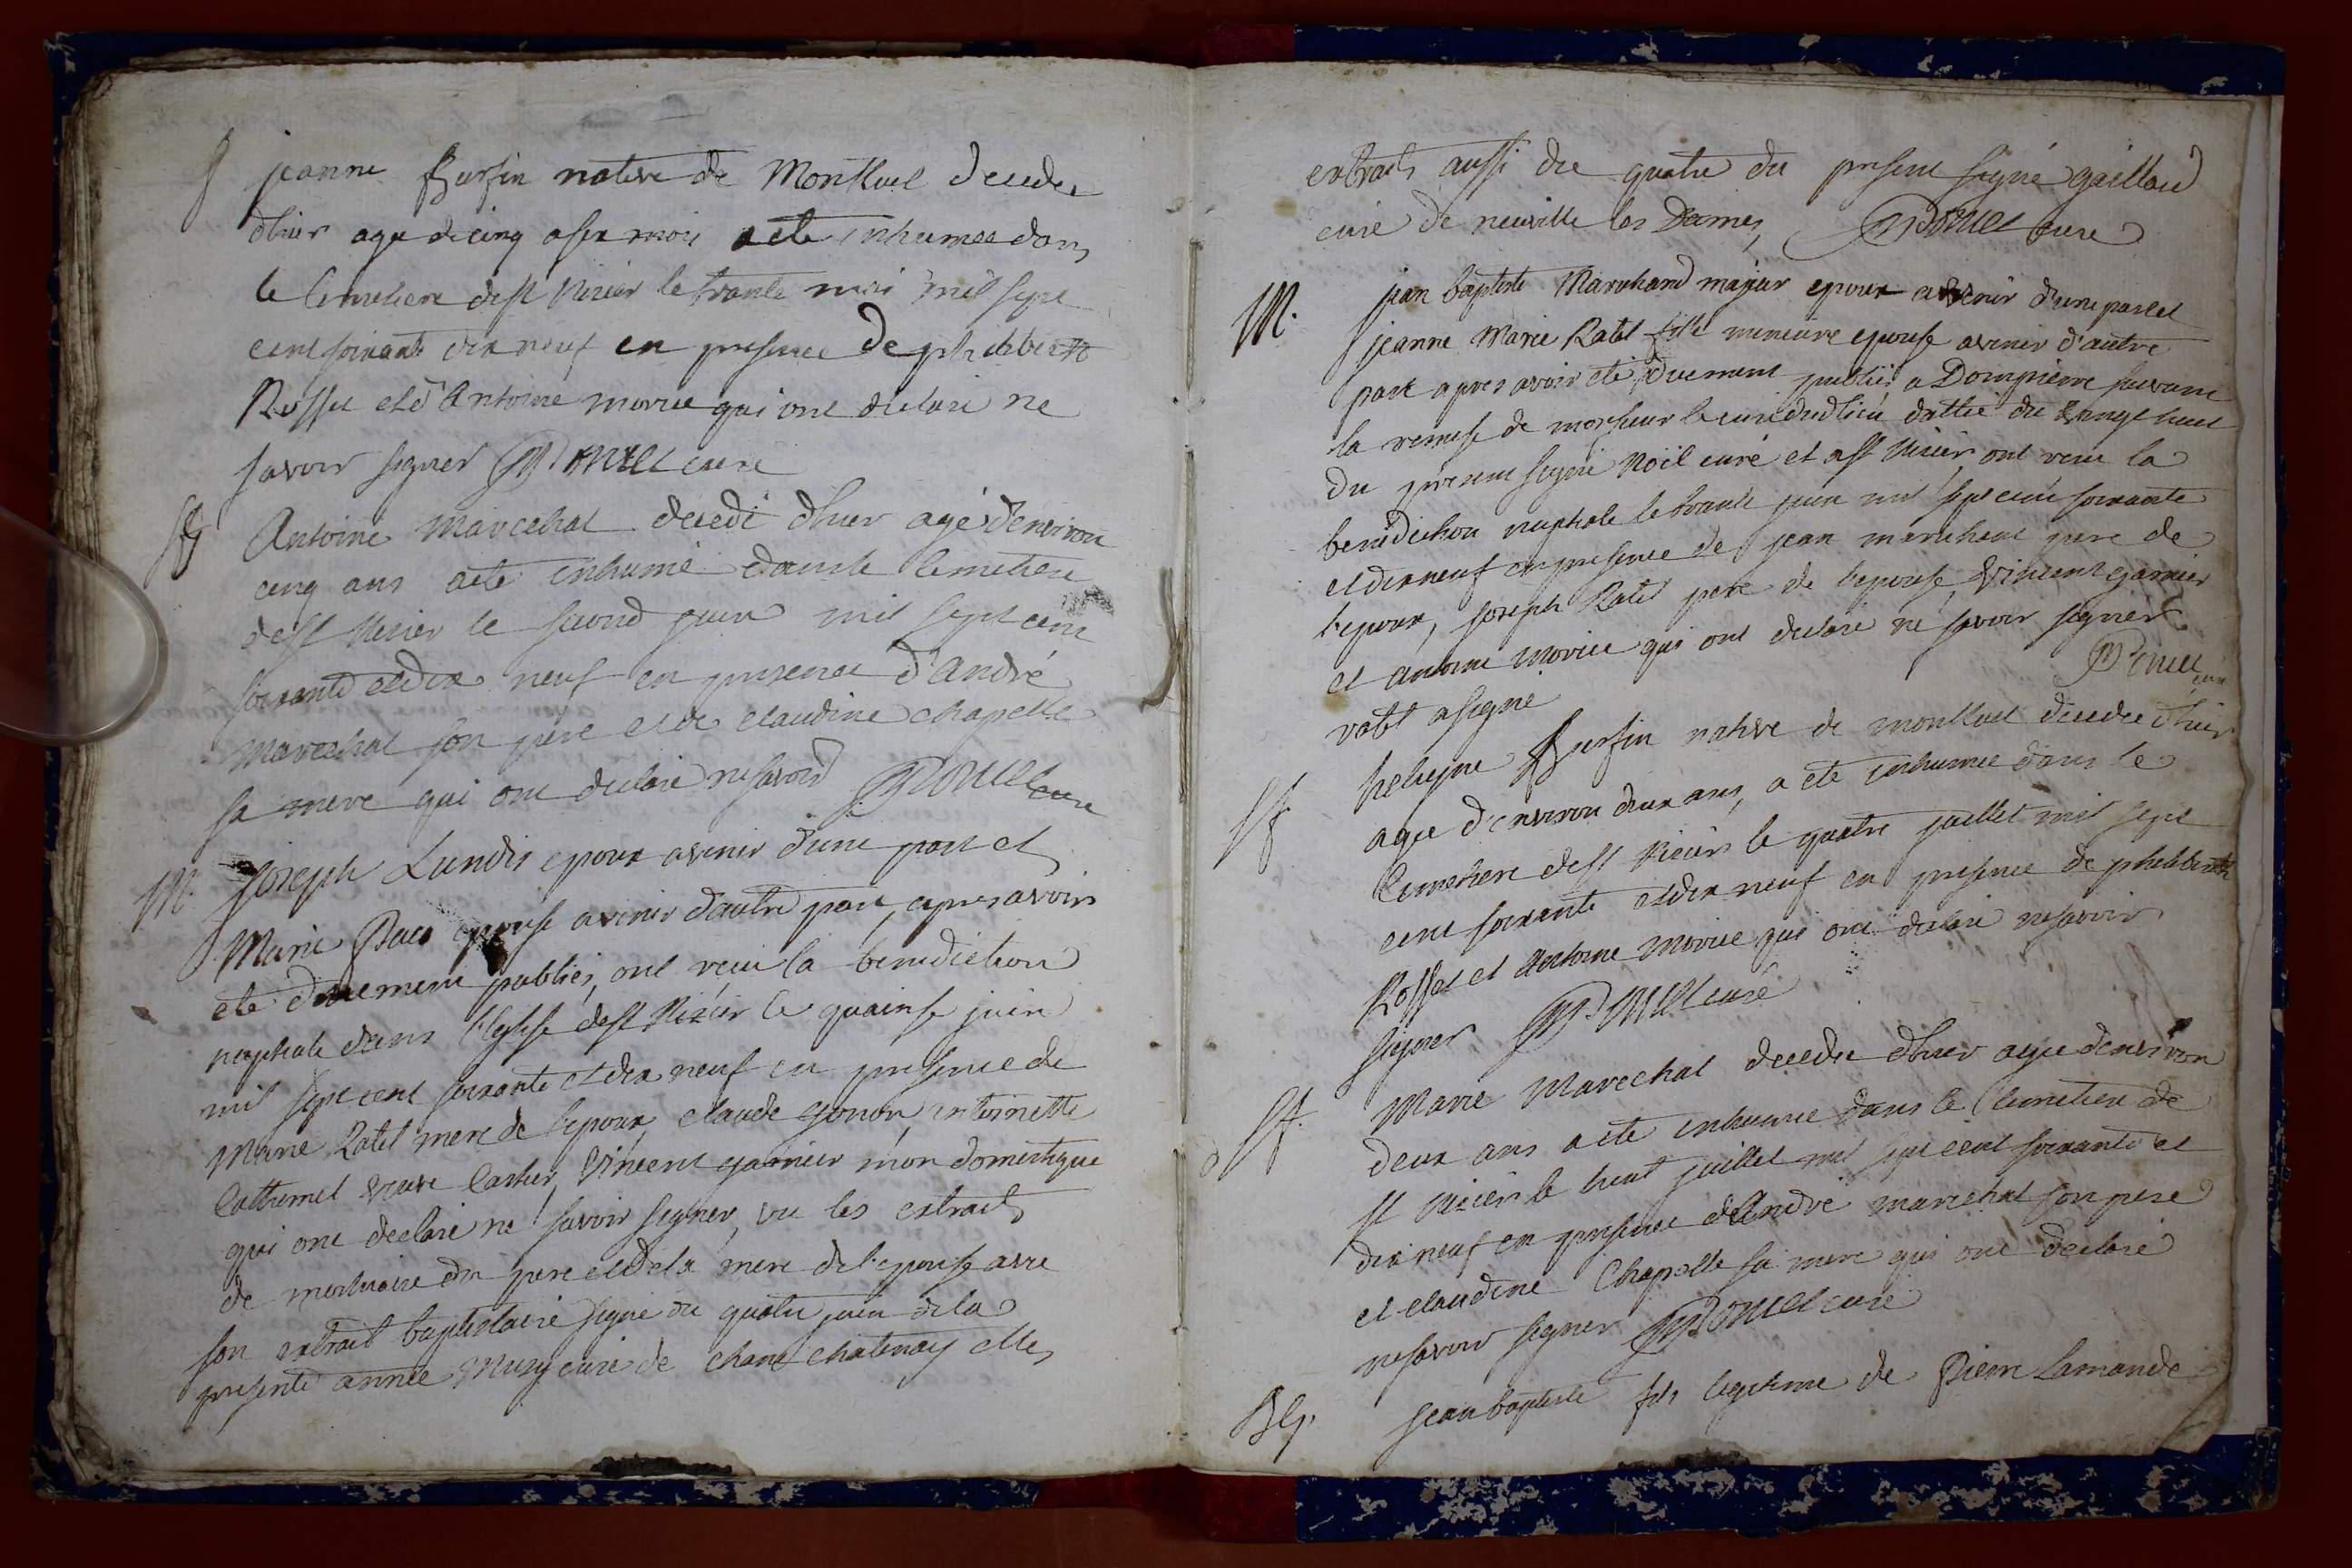 jeanne Bursin native de Montluel decedee
dhier agee de cinq a six mois a ete inhumee dans
le Cimetiere de st Nizier le trante mai mil sept
cent soixante dix neuf en presence de philibert
Rosset et d'Antoine morice qui ont declaré ne
savoir signer curé
Sf Antoine Marechal decedé dhier agé denviron
cinq ans a ete inhumé dans le Cimetiere
de st Nizier le second juin mil sept cent
soixante et dix neuf en presence d'André
Marechal son pere et de claudine chapelle
sa mere qui ont declaré ne savoir curé
M. Joseph Lundis epoux avenir d'une part et
Marie epouse avenir d'autre part, apres avoir
ete duement publiés, ont recu la benediction
nuptiale dans l'eglise de st Nizier le quainse juin
mil sept cent soixante et dix neuf en presence de
Marie Ratel mere de l'epoux, claude gonon, antoinette
veuve Vincent garnier mon domestique
qui ont declaré ne savoir signer, vu les extraits
de mortuaire du pere et de la mere de l'epouse avec
son extrait baptistaire signé du quatre juin de la
presente année curé de chane chatenay elles
extraits aussi du quatre du present signé gaillard
curé de neuville les Dames, curé
M. jean baptiste Marchand majeur epoux avenir d'une part et
jeanne Marie Ratel fille mineure epouse avenir d'autre
part apres avoir été duement publiés a Dompierre suivant
la remise de monsieur le curé dudlieu dattée du vingt huit
du present signé Noël curé et a st Nizier, ont recu la
benediction nuptiale le trante juin mil sept cent soixante
et dix neuf en presence de jean marchand pere de
l'epoux, joseph Ratel pere de l'epouse, Vincent garnier
et antoine morice qui ont declaré ne savoir signer
ratel a signé curé
Sf. Bursin native de montluel decedee d'hier
agee d'environ deux ans, a ete inhumee dans le
Cimetiere de st Nizier le quatre juillet mil sept
cent soixante et dix neuf en presence de philibert
Rosset et Antoine Morice qui ont declaré ne savoir
signer curé
Sf. Marie Marechal decedee dhier agee denviron
deux ans a ete inhumee dans le Cimetiere de
st Nizier le huit juillet mil sept cent soixante et
dix neuf en presence d'André marechal son pere
et claudine Chapelle sa mere qui ont declaré
ne savoir signer curé
Bp. Jean baptiste fils legitime de Pierre Lamande